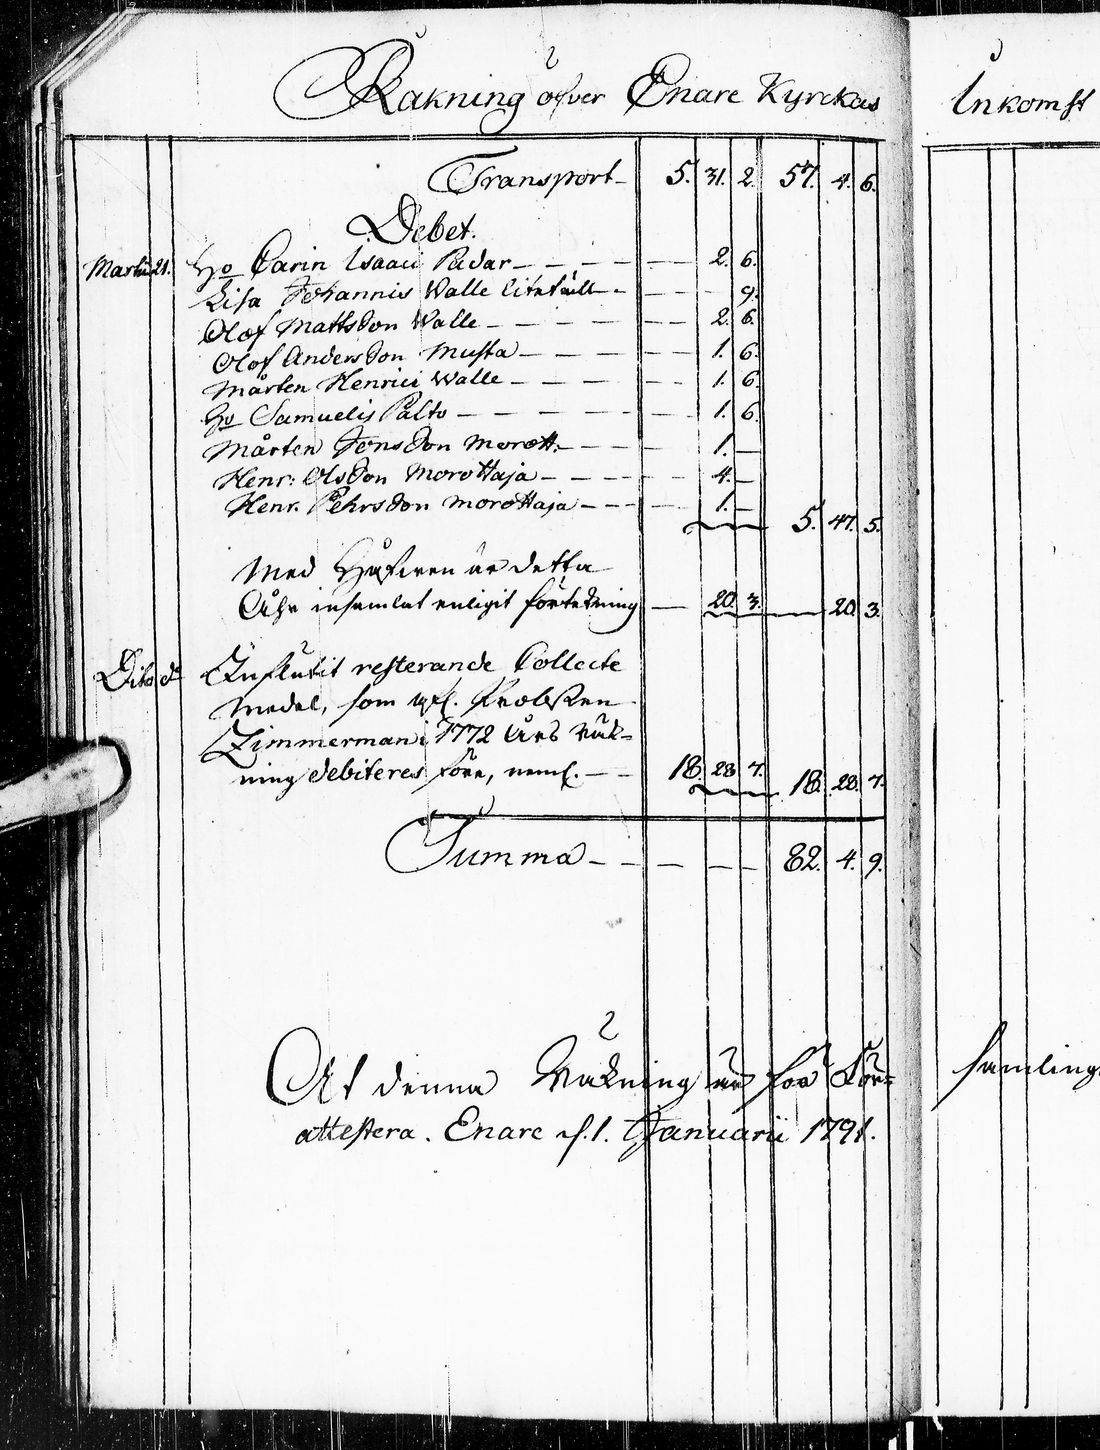 Räkning öfver Enare Kyrckas
Transport 5. 31. 2. 57. 4. 6.
Debet.
Martii 21. Ho Carin Isaaci Padar 2. 6.
Lisa Johannis Walle 9.
Olof Mattsson Walle 2. 6.
Olof Andersson Musta 1. 6.
Mårten Henrici Walle 1. 6.
Ho Samuelis Palto 1. 6.
Mårten Jonsson Morott. 1. —
Henr: Olsson Morottaja 4. —
Henr. Pehrsson Morottaja 1. — 5. 47. 5.
Med Håfven är detta
Åhr insamlat enligit förtekning 20. 3. 20. 3.
Dito do Influtit resterande Collecte
Medel, som Probsten
Zimmerman i 1772 Års Räk-
ning debiteres före, neml. 18. 28. 7. 18. 28. 7.
Summa 82. 4. 9.
At denna Räkning är för För-
attestera. Enare d. 1. Januarii 1791.
Inkomst
samlings